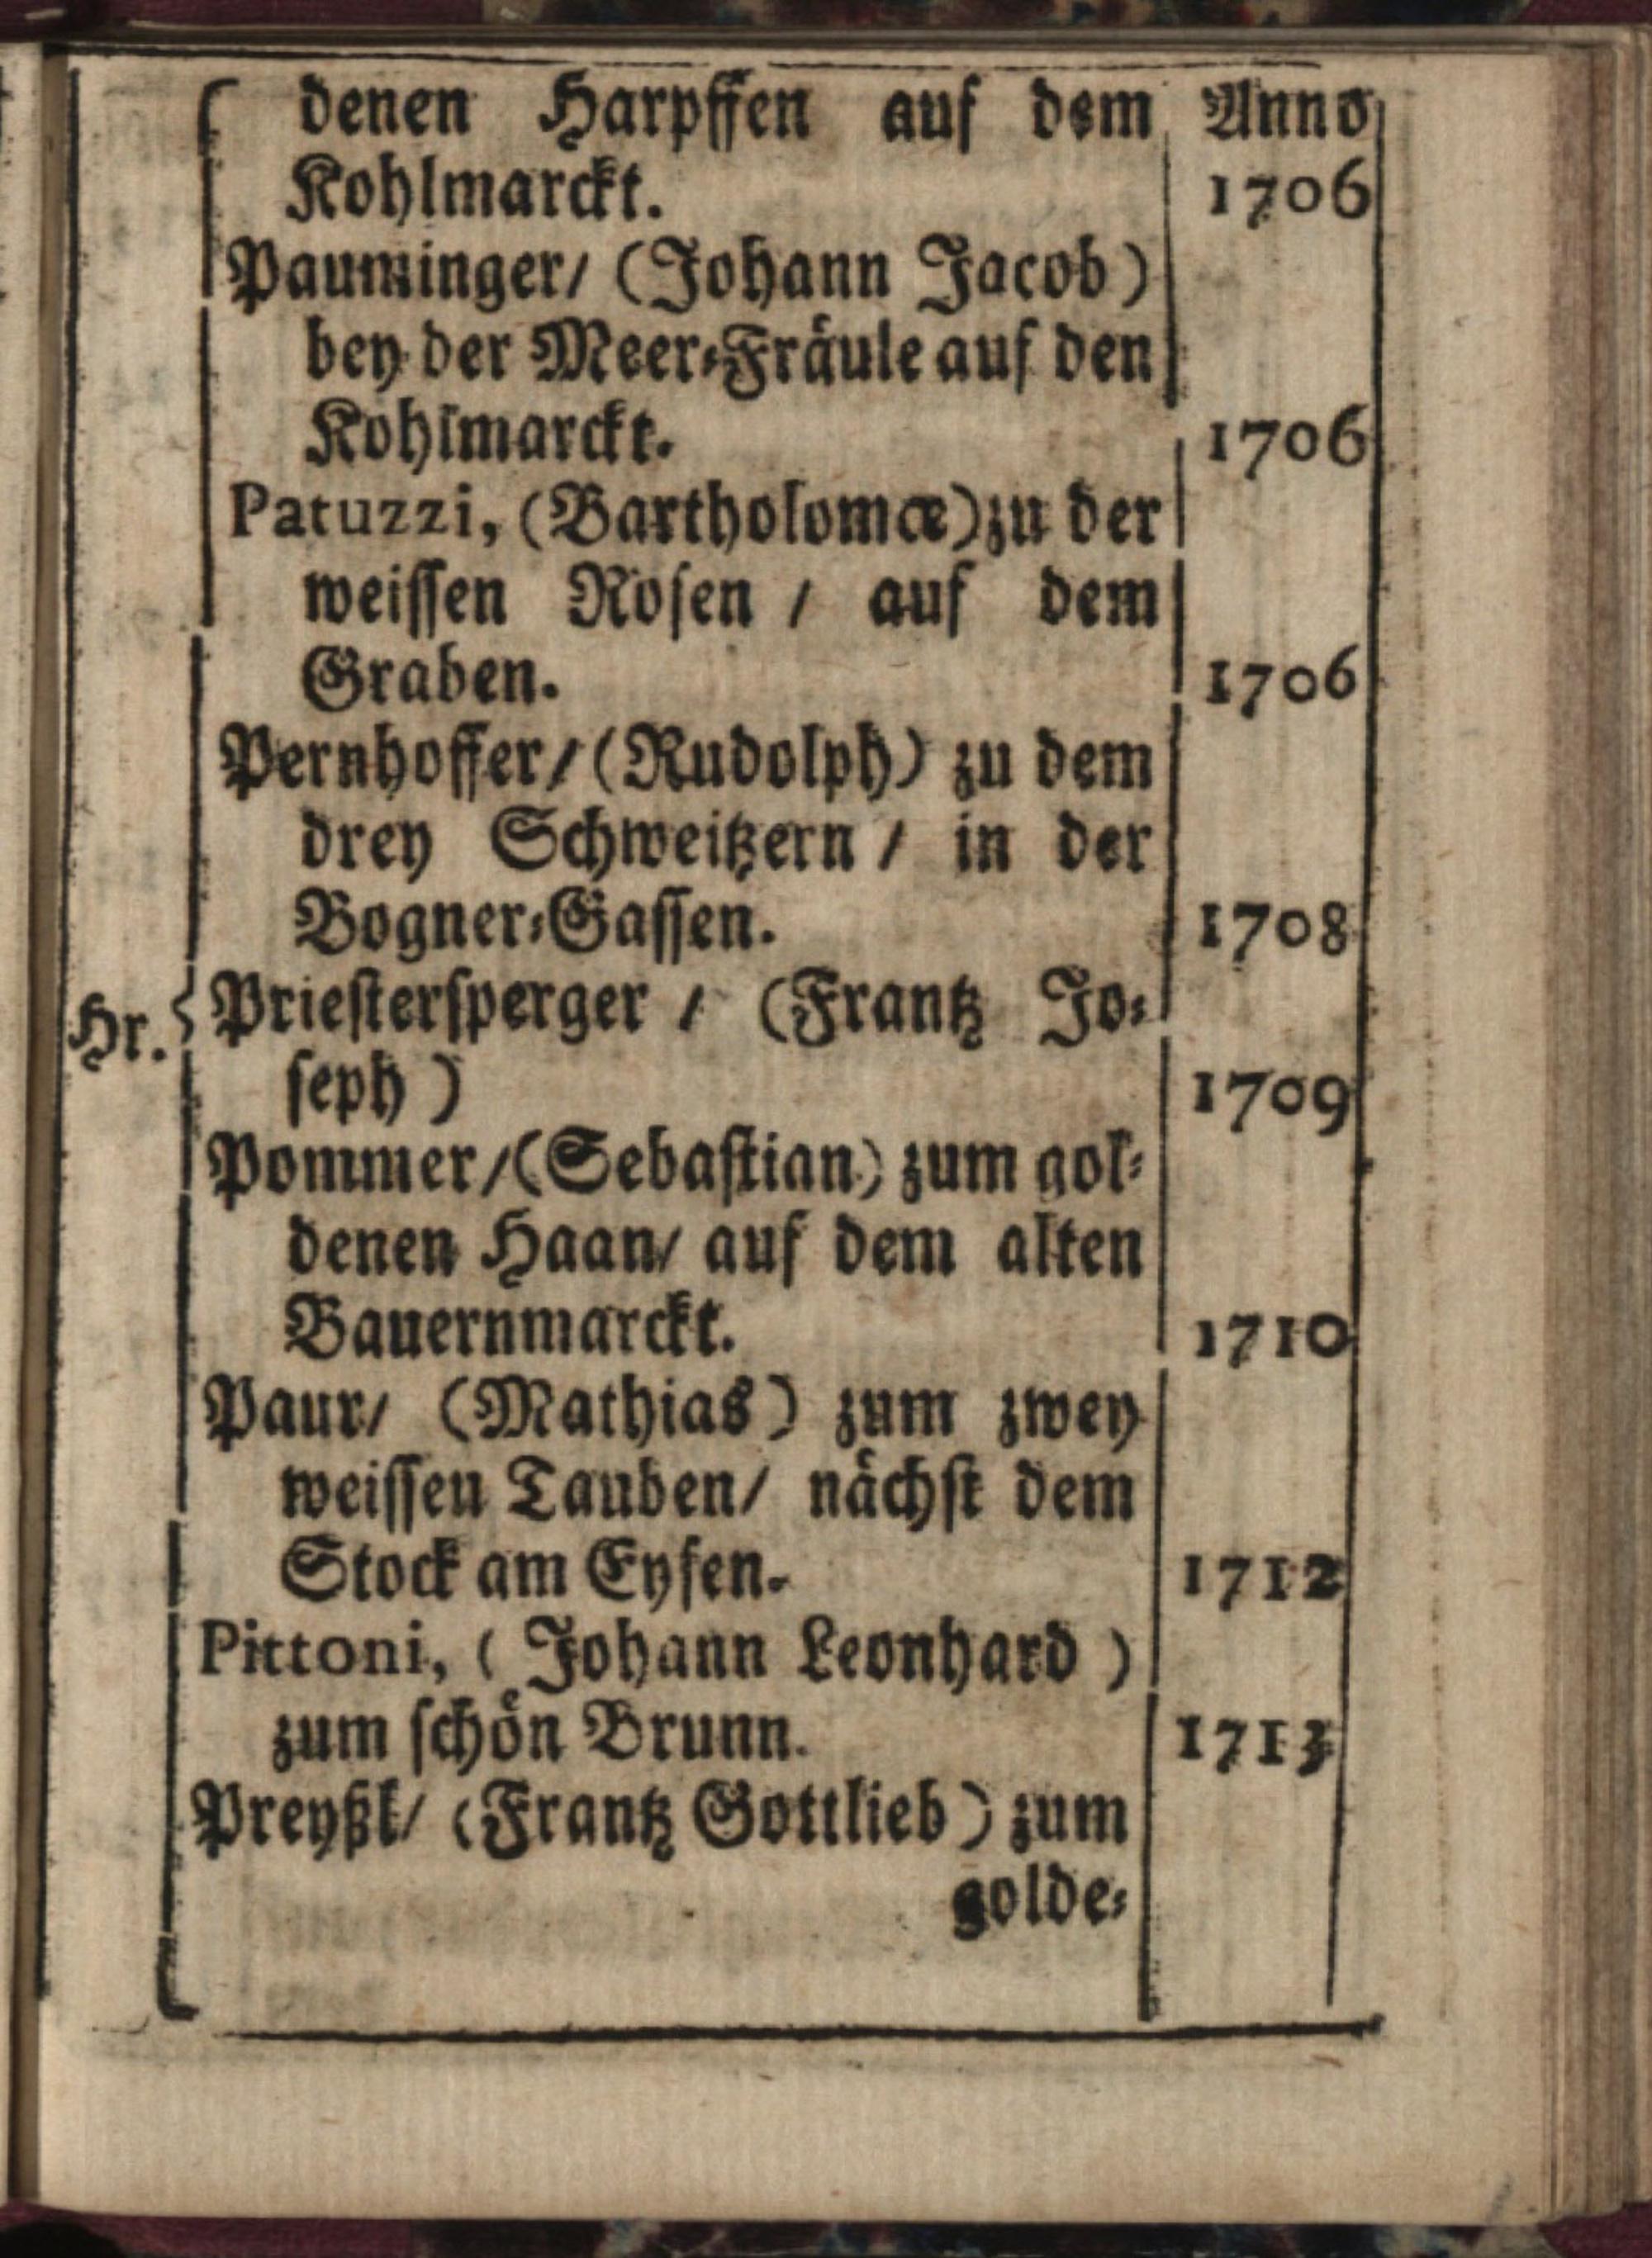 denen Harpffen auf dem Anno
Kohlmarckt. 1706
Pauminger/ (Johann Jacob)
bey der Meer-Fräule auf den
Kohlmarckt. 1706
Patuzzi, (Bartholomæ) zu der
weissen Rosen / auf dem
Graben. 1706
Pernhoffer/ (Rudolph) zu dem
drey Schweitzern / in der
Bogner-Gassen. 1708
Hr. Priestersperger / (Frantz Jo-
seph) 1709
Pommer/ (Sebastian) zum gol-
denen Haan/ auf dem alten
Bauernmarckt. 1710
Paur/ (Mathias) zum zwey
weissen Tauben/ nächst dem
Stock am Eysen. 1712
Pittoni, (Johann Leonhard)
zum schön Brunn. 1713
Preyßl/ (Frantz Gottlieb) zum
golde-